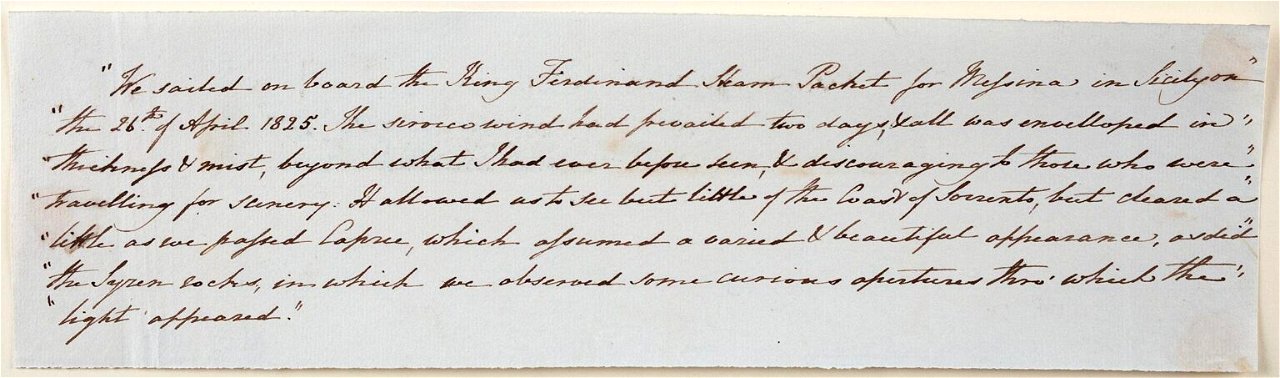 "We sailed on board the King Ferdinand Steam Packet for Messina in Sicily on"
"the 26th of April 1825. The sirocco wind had prevailed two days, & all was envelloped in"
"thickness & mist, beyond what I had ever before seen, & discouraging to those who were"
"travelling for scenery. It allowed us to see but little of the Coast of Sorrento, but cleared a"
"little as we passed Capree, which assumed a varied & beautiful appearance, as did"
"the Syren rocks, in which we observed some curious apertures thro' which the"
"light appeared."